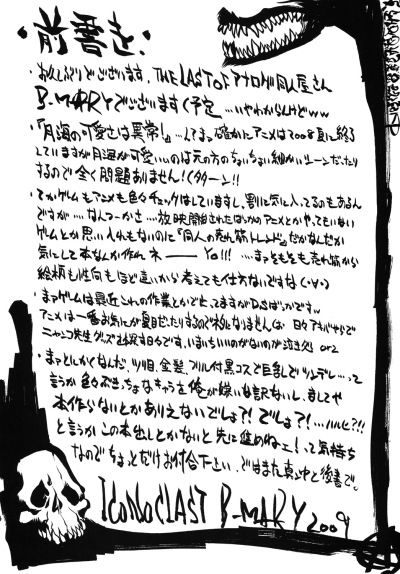 ・前書き・
・お久しぶりでございます。THE LASTOFアナログ同人屋さん
B-MARYでございます(予定…いやわからんけどww
・『月海の可愛さは異常!』…してま。確かにアニメは2008夏に終る
していますが月海が可愛いいのは元の方のちょいちょい細かいシーンだったり
するので全く問題ありません!(タターン!!
・てかゲームもアニメも色々チェックはしていますし、割りに気に入ってるのもあるん
ですが……なんつーかさ……放映開始されたばっかのアニメとかやってもいない
ゲームとか思い入れもないのに『同人の売れ筋トレンド』だかなんだか
気にして本なんか作れ ネ―― Yo!!! …まァもともと売れ筋から
絵柄も性向もほど遠いから考えても仕方ないですな(・∀・)
・まァゲームは最近これの作業とかで とってますがDSばっかですw
アニメは一番お気にが夏目だったりするのでネタになりませんは 日々アキバで
ニャンコ先生グッズを探す日々です、いまいちいいのがないのが泣き処 orz
・まァとにかくなんだ、ツリ目、金髪、フリル付黒コスで巨乳でツンデレ…って
言うか色々ぶきっちょなキャラを俺が嫌いな訳ないし、ましてや
本作らないとかありえないでしょ?! でしょ?!…ハルヒ?!!
と言うかこの本出しとかないと先に進めねェ!って気持ち
なのでちょっとだけお付合下さい、ではまた真ン中と後書で。
ICONOCLAST B-MARY 2009